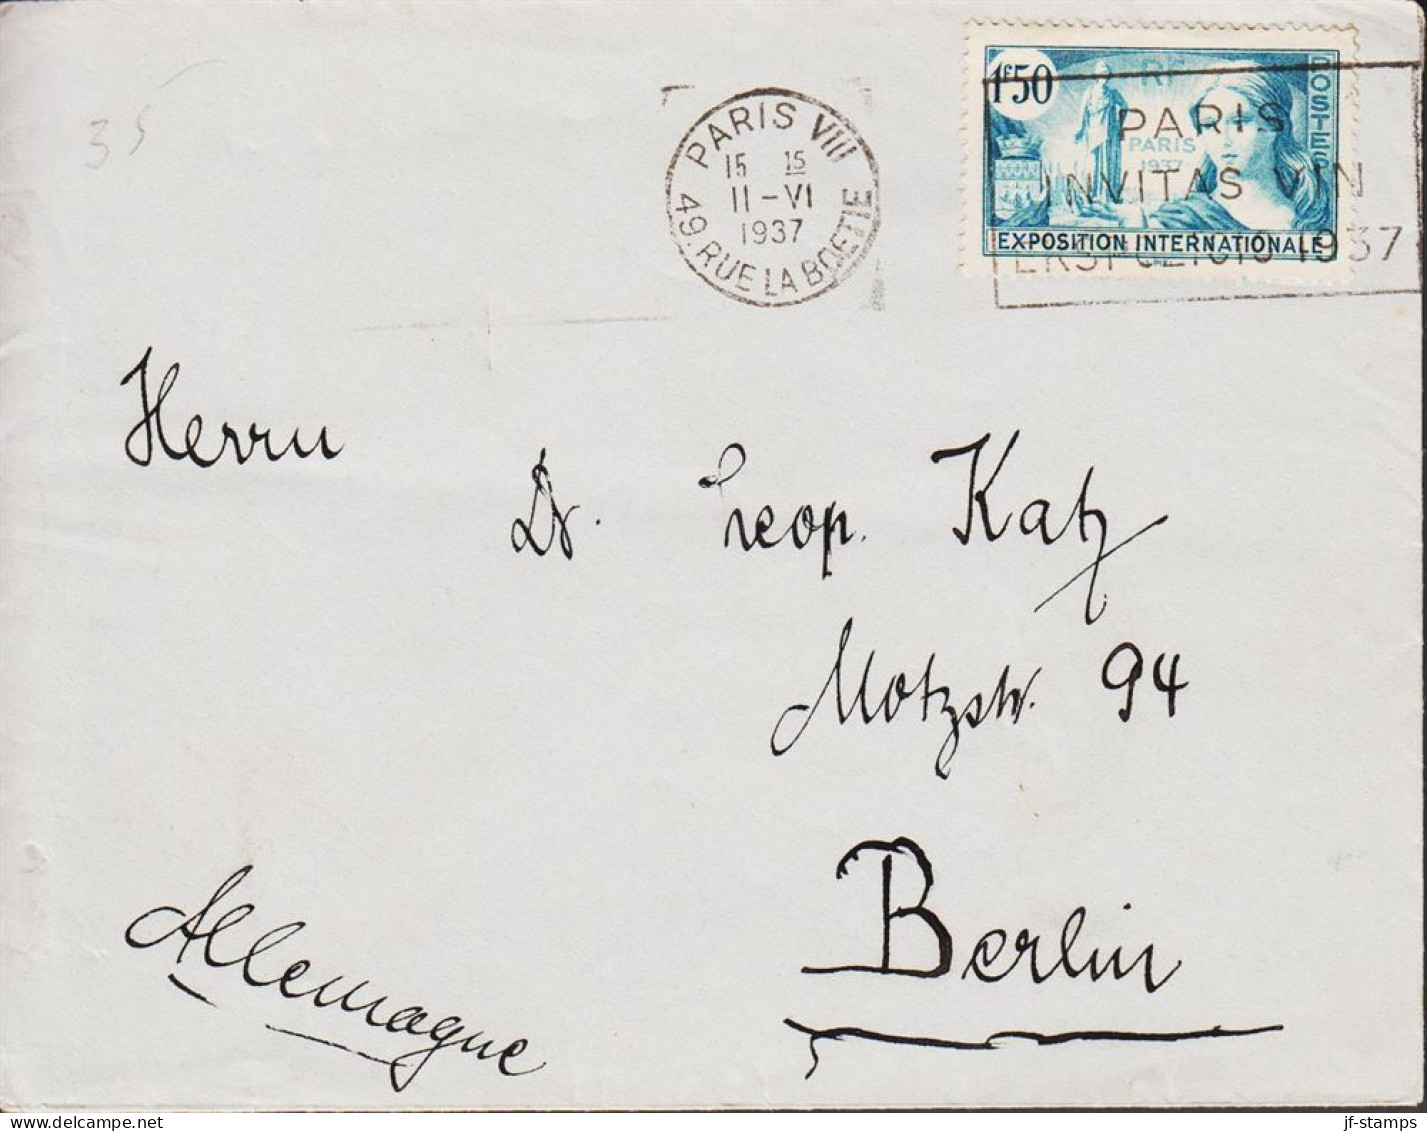 35
PARIS VIII
15 15
11-VI
1937
49. RUE LA BOETIE
1f50
RF
POSTES
PARIS
1937
EXPOSITION INTERNATIONALE
PARIS
INVITAS VIN
EKSPOZICIO 1937
Herrn
Dr. Leop. Katz
Motzstr. 94
Berlin
Allemagne
jf-stamps